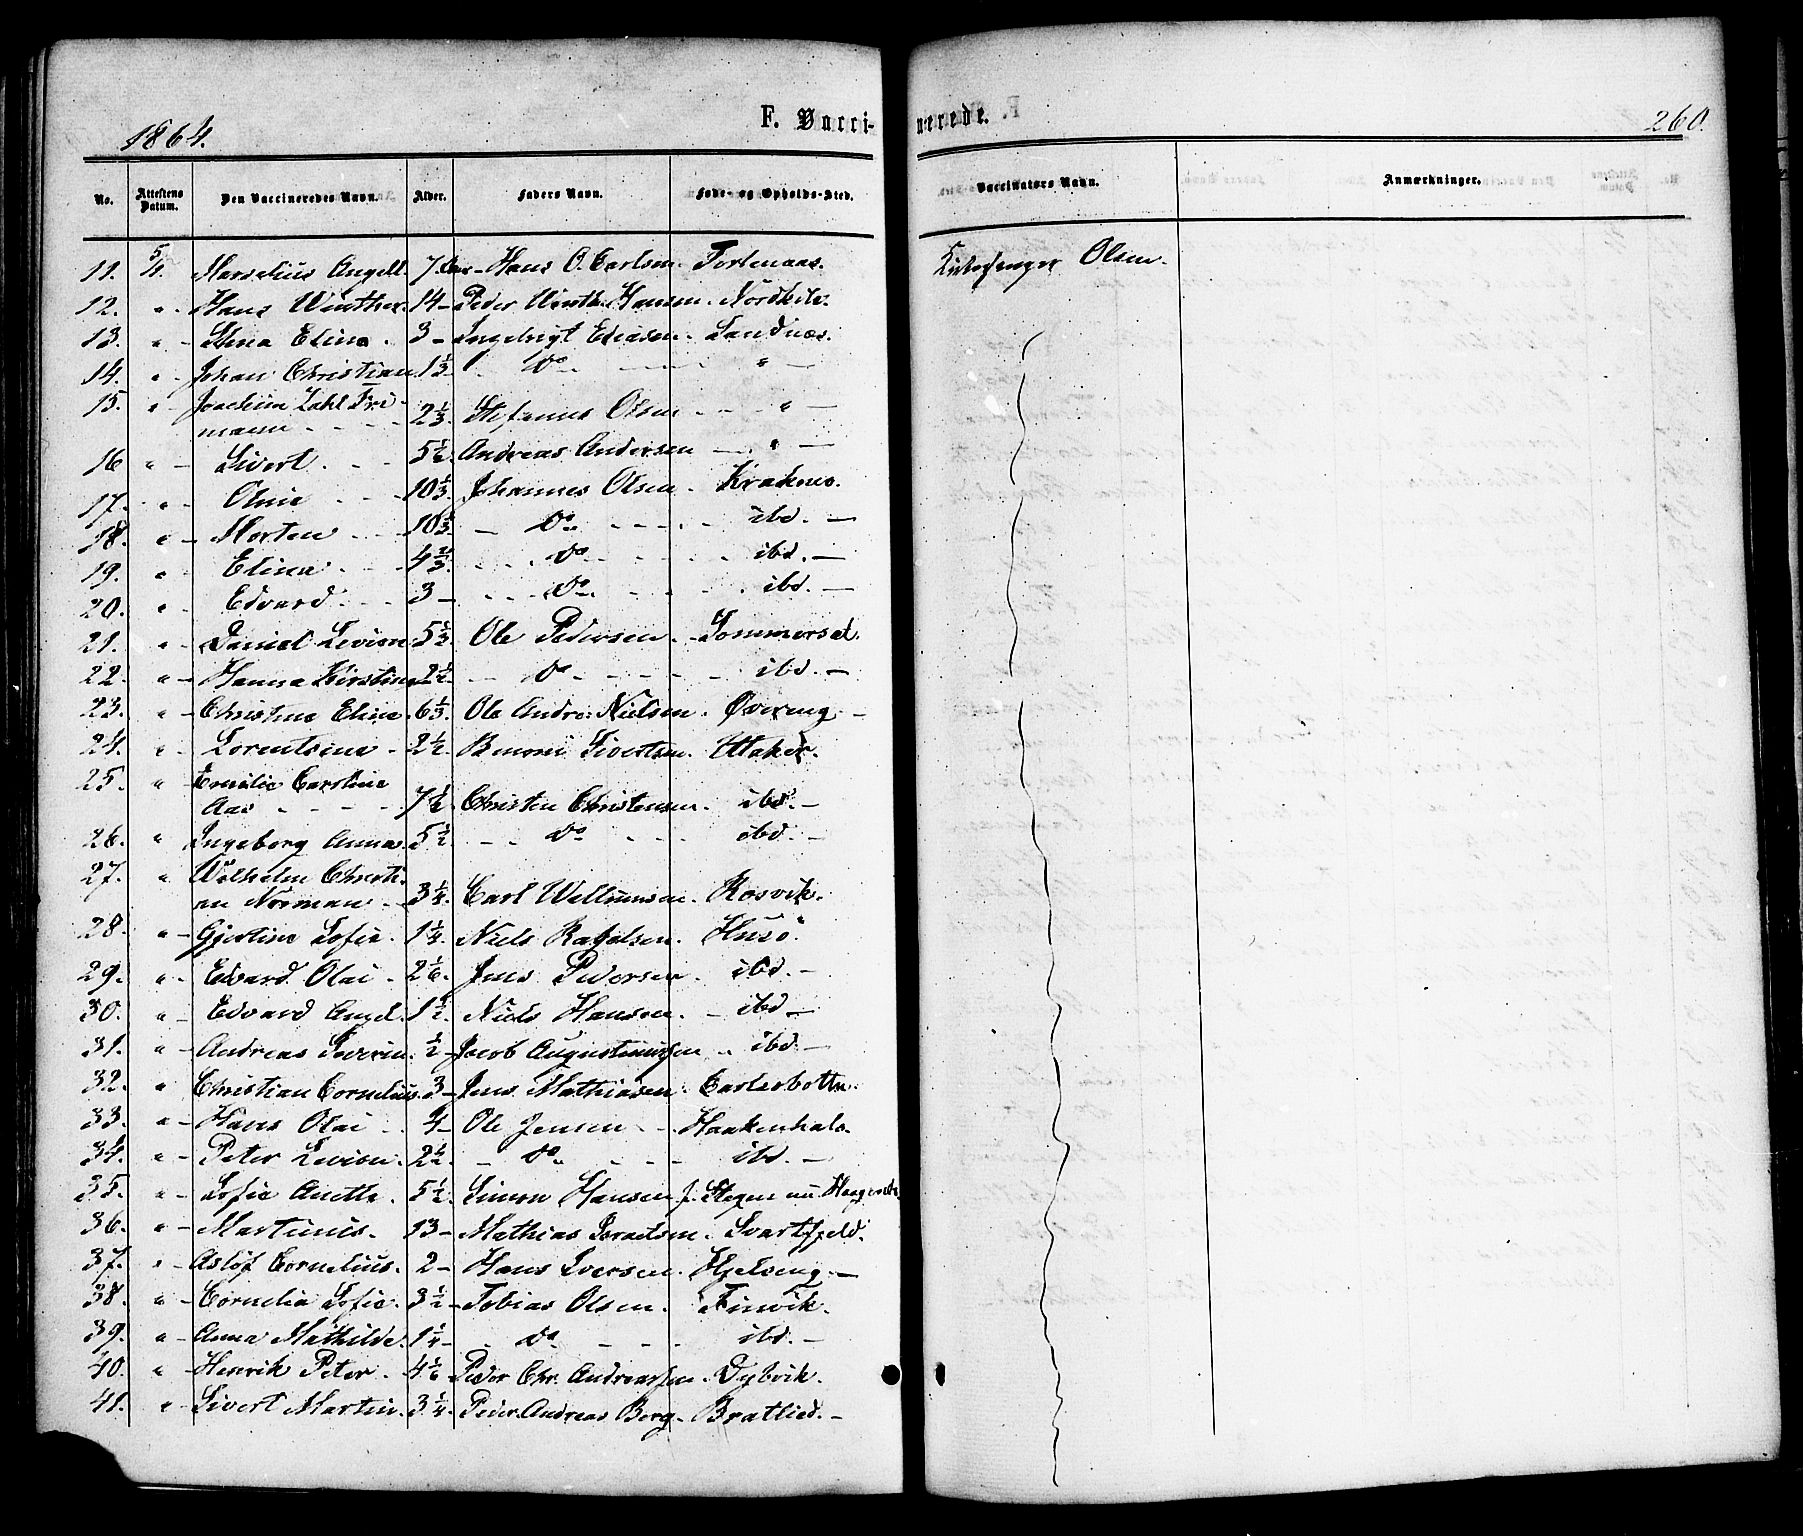 1864.
F. Vacci-
nerede.
260.
No. Attestens Datum. Den Vaccineredes Navn. Alder. Faders Navn. Føde- og Opholds-Sted. Vaccinators Navn. Anmærkninger.
11. 5/4. Marselius Angell. 7 Aar - Hans O. Carlsen. Kirkesanger Olsen.
12. " - Hans Winther. 14 - Peder Winth. Hansen.
13. " - Stina Elina. 3 - Ingebrigt Eliasen. Sandnæs.
14. " - Johan Christian. 1 1/3. - Do - " -
15. " - Joachim Zahl Fri-
mann - - - 2 1/3. Stefanus Olsen - - " -
16 " - Sivert. - - 5 1/2. Andreas Andersen - " -
17. " - Oline - - 10 1/3. Johannes Olsen - Krakmo.
18. " - Morten - - 10 1/3. - Do - - - ibd. -
19. " - Elina - - 4 2/3. - - Do - - ibd. -
20. " - Edvard - - 3 - - - Do - - ibd. -
21. " - Daniel Levion. 5 1/3. Ole Pedersen - Sommerset.
22. " - Hanna Kirstine 2 1/2. - Do - - - ibd. -
23. " - Christine Eline. 6 1/3. Ole Andr: Nielsen. Øvereng -
24. " - Lorentsine - 2 1/2. Benoni Sivertsen. Uttaker.
25. " Emilie Caroline
Aas - - - - 7 1/2. Christen Christensen. ibd. -
26. " Ingeborg Anna. 5 1/2. - - Do - - ibd. -
27. " Wilhelm Christi-
an Norman - 3 1/4. Carl Willumsen. Rosvik.
28. " - Gjertine Sofie. 1 1/4. Niels Rafelsen. Husö.
29. " - Edvard Olai - 2 1/6. Jens Pedersen - ibd. -
30. " - Edvard Angel. 1 1/2. Niels Hansen. - ibd -
31. " - Andreas Severin. 1/2 - Jacob Augustinussen - ibd. -
32. " - Christian Cornelius. 3 - Jens Mathiasen. Carlsobotn.
33. " - Hans Olai - 4 - Ole Jensen - - Haakenhals.
34. " - Peter Levion. 2 1/2. - Do - - - ibd. -
35. " - Sofie Anette. 5 1/2. Simon Hansen f. Stegen nu
36. " - Martinus. - 13 - Mathias Israelsen. Svartfjeld.
37. " - Asløf Cornelius. 2 - Hans Iversen. Hjelseng -
38. " - Cornelia Sofie. 3 1/2 - Tobias Olsen. Finvik.
39. " - Anna Mathilde. 1 1/4 - - Do - - - ibd. -
40. " - Henrik Peter. - 4 1/6 - Peder Chr. Andreassen. Dybvik.
41. " - Sivert Martin. 3 1/4. Peder Andreas Berg. Bratlied. -